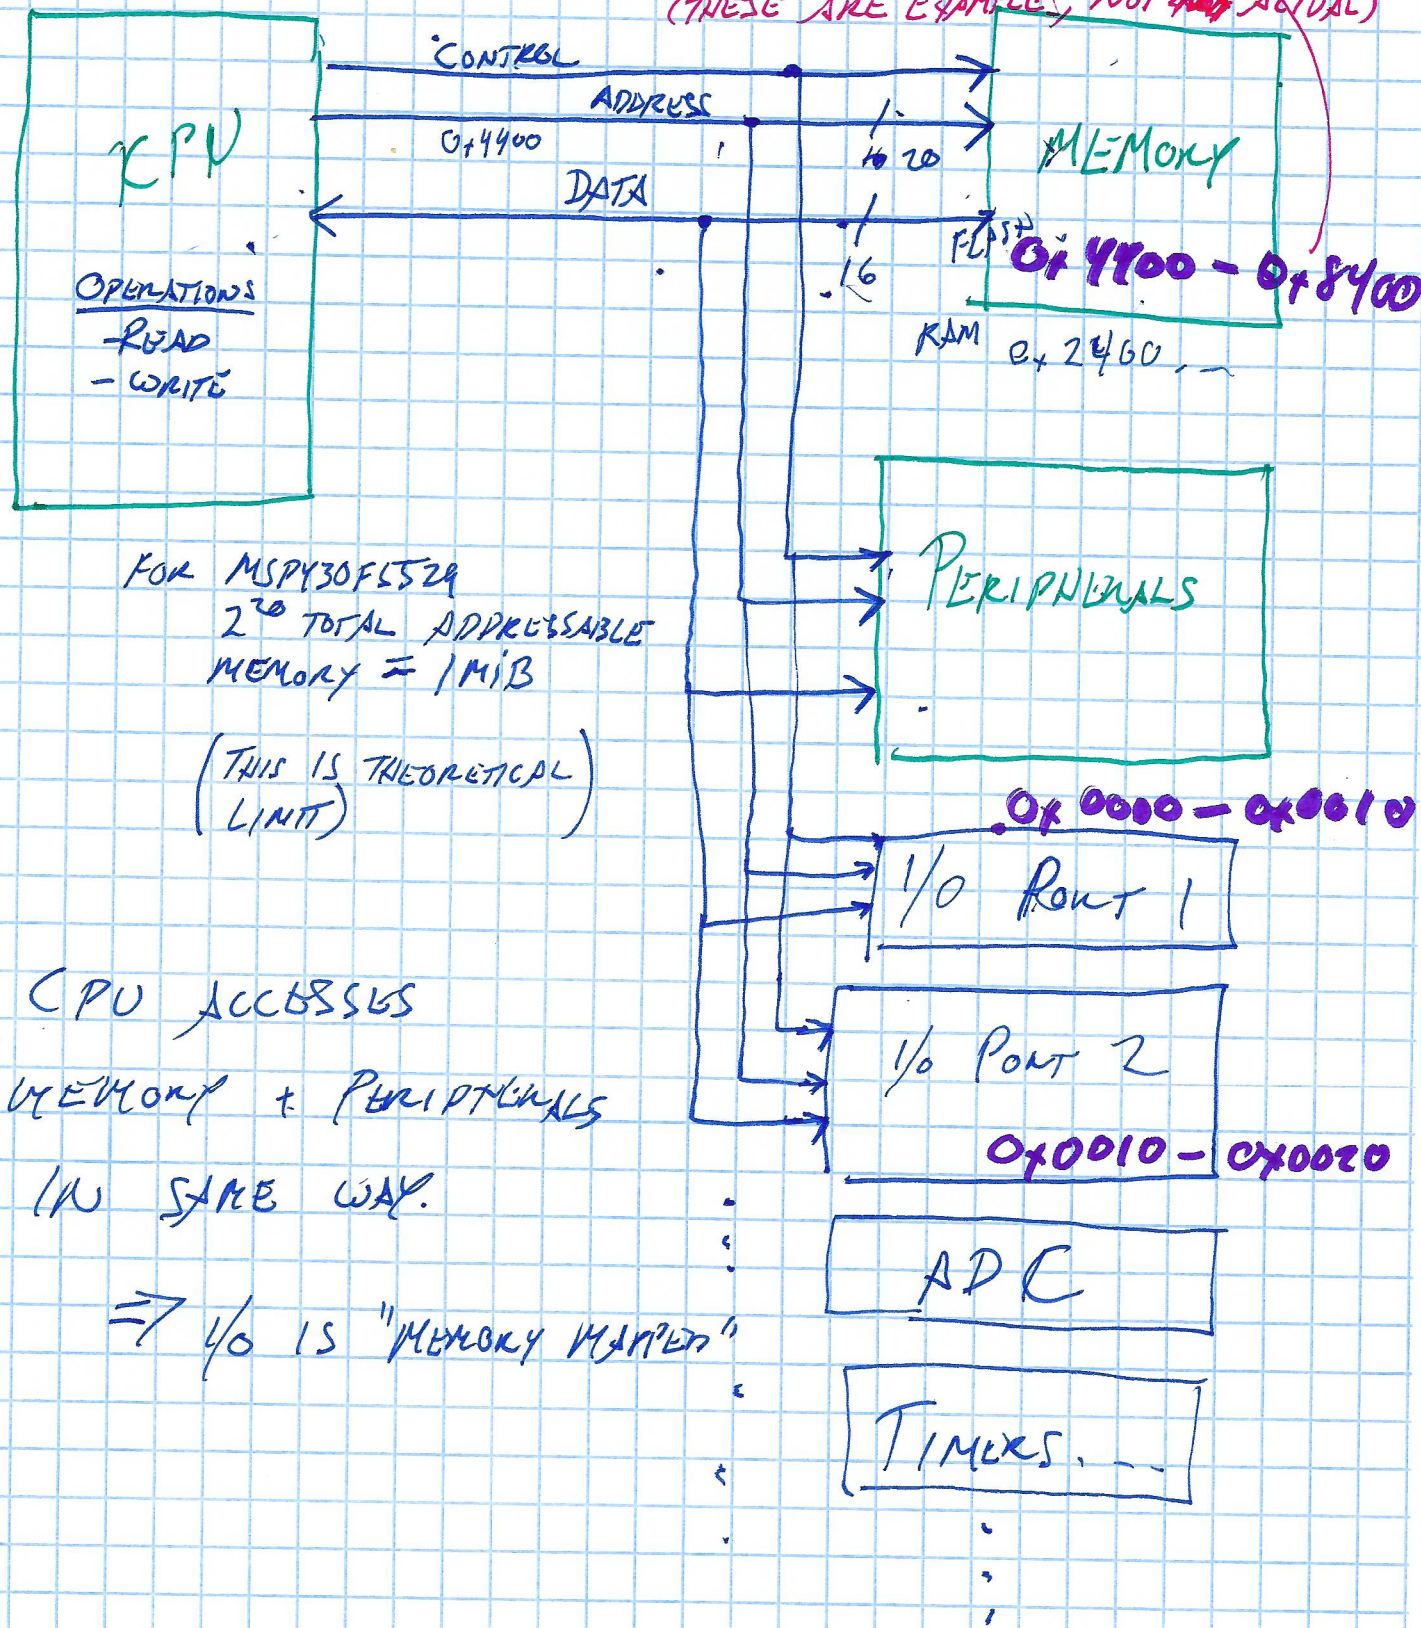 (THESE ARE EXAMPLES, NOT ACTUAL)
CONTROL
ADDRESS
0x4400
20
DATA
16
CPU
OPERATIONS
- READ
- WRITE
MEMORY
FLASH
0x4400 - 0x8400
RAM 0x2400 . . .
PERIPHERALS
FOR MSP430F5529
2^20 TOTAL ADDRESSABLE
MEMORY = 1 MiB
(THIS IS THEORETICAL
LIMIT)
0x0000 - 0x0010
I/O PORT 1
I/O PORT 2
0x0010 - 0x0020
ADC
TIMERS. ...
CPU ACCESSES
MEMORY + PERIPHERALS
IN SAME WAY.
=> I/O IS "MEMORY MAPPED"